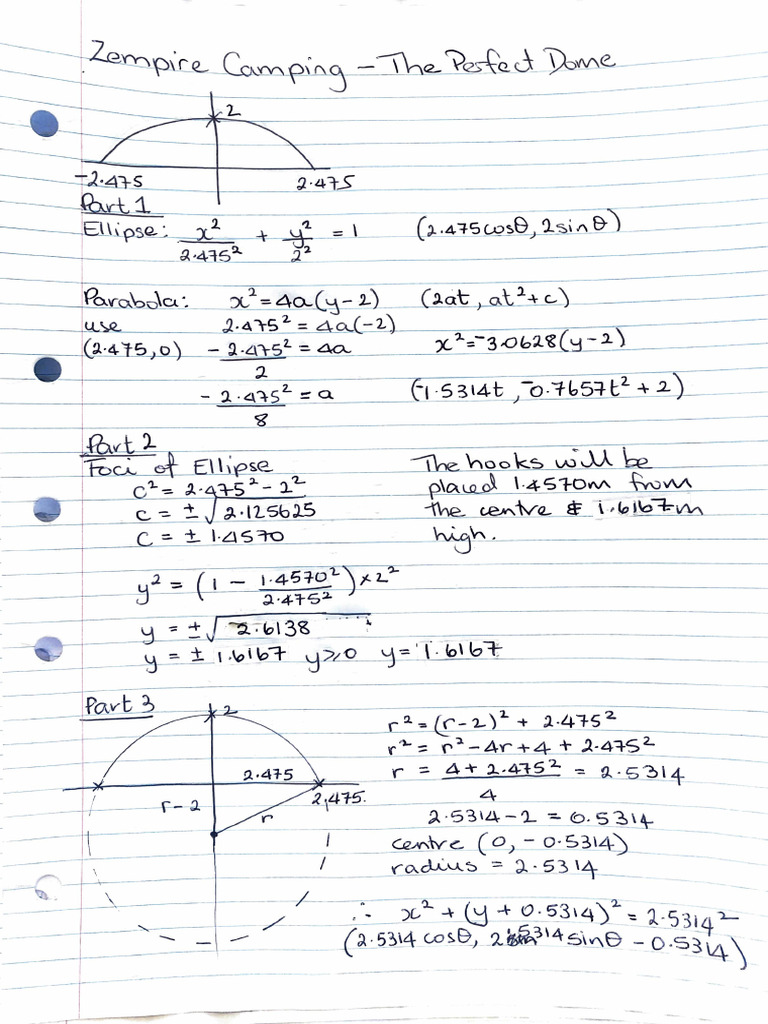 Zempire Camping – The Perfect Dome
2
-2.475 2.475
Part 1
Ellipse: x²/2.475² + y²/2² = 1 (2.475cosθ, 2sinθ)
Parabola: x² = 4a(y-2) (2at, at²+c)
use 2.475² = 4a(-2)
(2.475, 0) -2.475²/2 = 4a x² = -3.0628(y-2)
-2.475²/8 = a (-1.5314t, -0.7657t² + 2)
Part 2
Foci of Ellipse
c² = 2.475² - 2²
c = ±√2.125625
c = ± 1.4570
The hooks will be
placed 1.4570m from
the centre & 1.6167m
high.
y² = (1 - 1.4570²/2.475²) × 2²
y = ±√2.6138
y = ± 1.6167 y⩾0 y = 1.6167
Part 3
2
2.475
2.475.
r-2
r
r² = (r-2)² + 2.475²
r² = r² - 4r + 4 + 2.475²
r = (4 + 2.475²)/4 = 2.5314
2.5314 - 2 = 0.5314
centre (0, -0.5314)
radius = 2.5314
∴ x² + (y + 0.5314)² = 2.5314²
(2.5314 cosθ, 2.5314 sinθ - 0.5314)